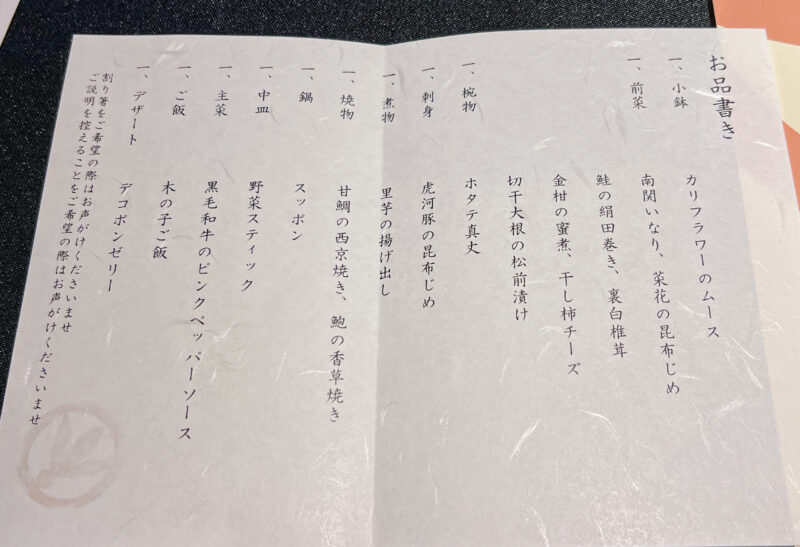 お品書き
一、小鉢 カリフラワーのムース
一、前菜 南関いなり、菜花の昆布じめ
鮭の絹田巻き、裏白椎茸
金柑の蜜煮、干し柿チーズ
切干大根の松前漬け
一、椀物 ホタテ真丈
一、刺身 虎河豚の昆布じめ
一、煮物 里芋の揚げ出し
一、焼物 甘鯛の西京焼き、鮑の香草焼き
一、鍋 スッポン
一、中皿 野菜スティック
一、主菜 黒毛和牛のピンクペッパーソース
一、ご飯 木の子ご飯
一、デザート デコポンゼリー
割り箸をご希望の際はお声がけくださいませ
ご説明を控えることをご希望の際はお声がけくださいませ